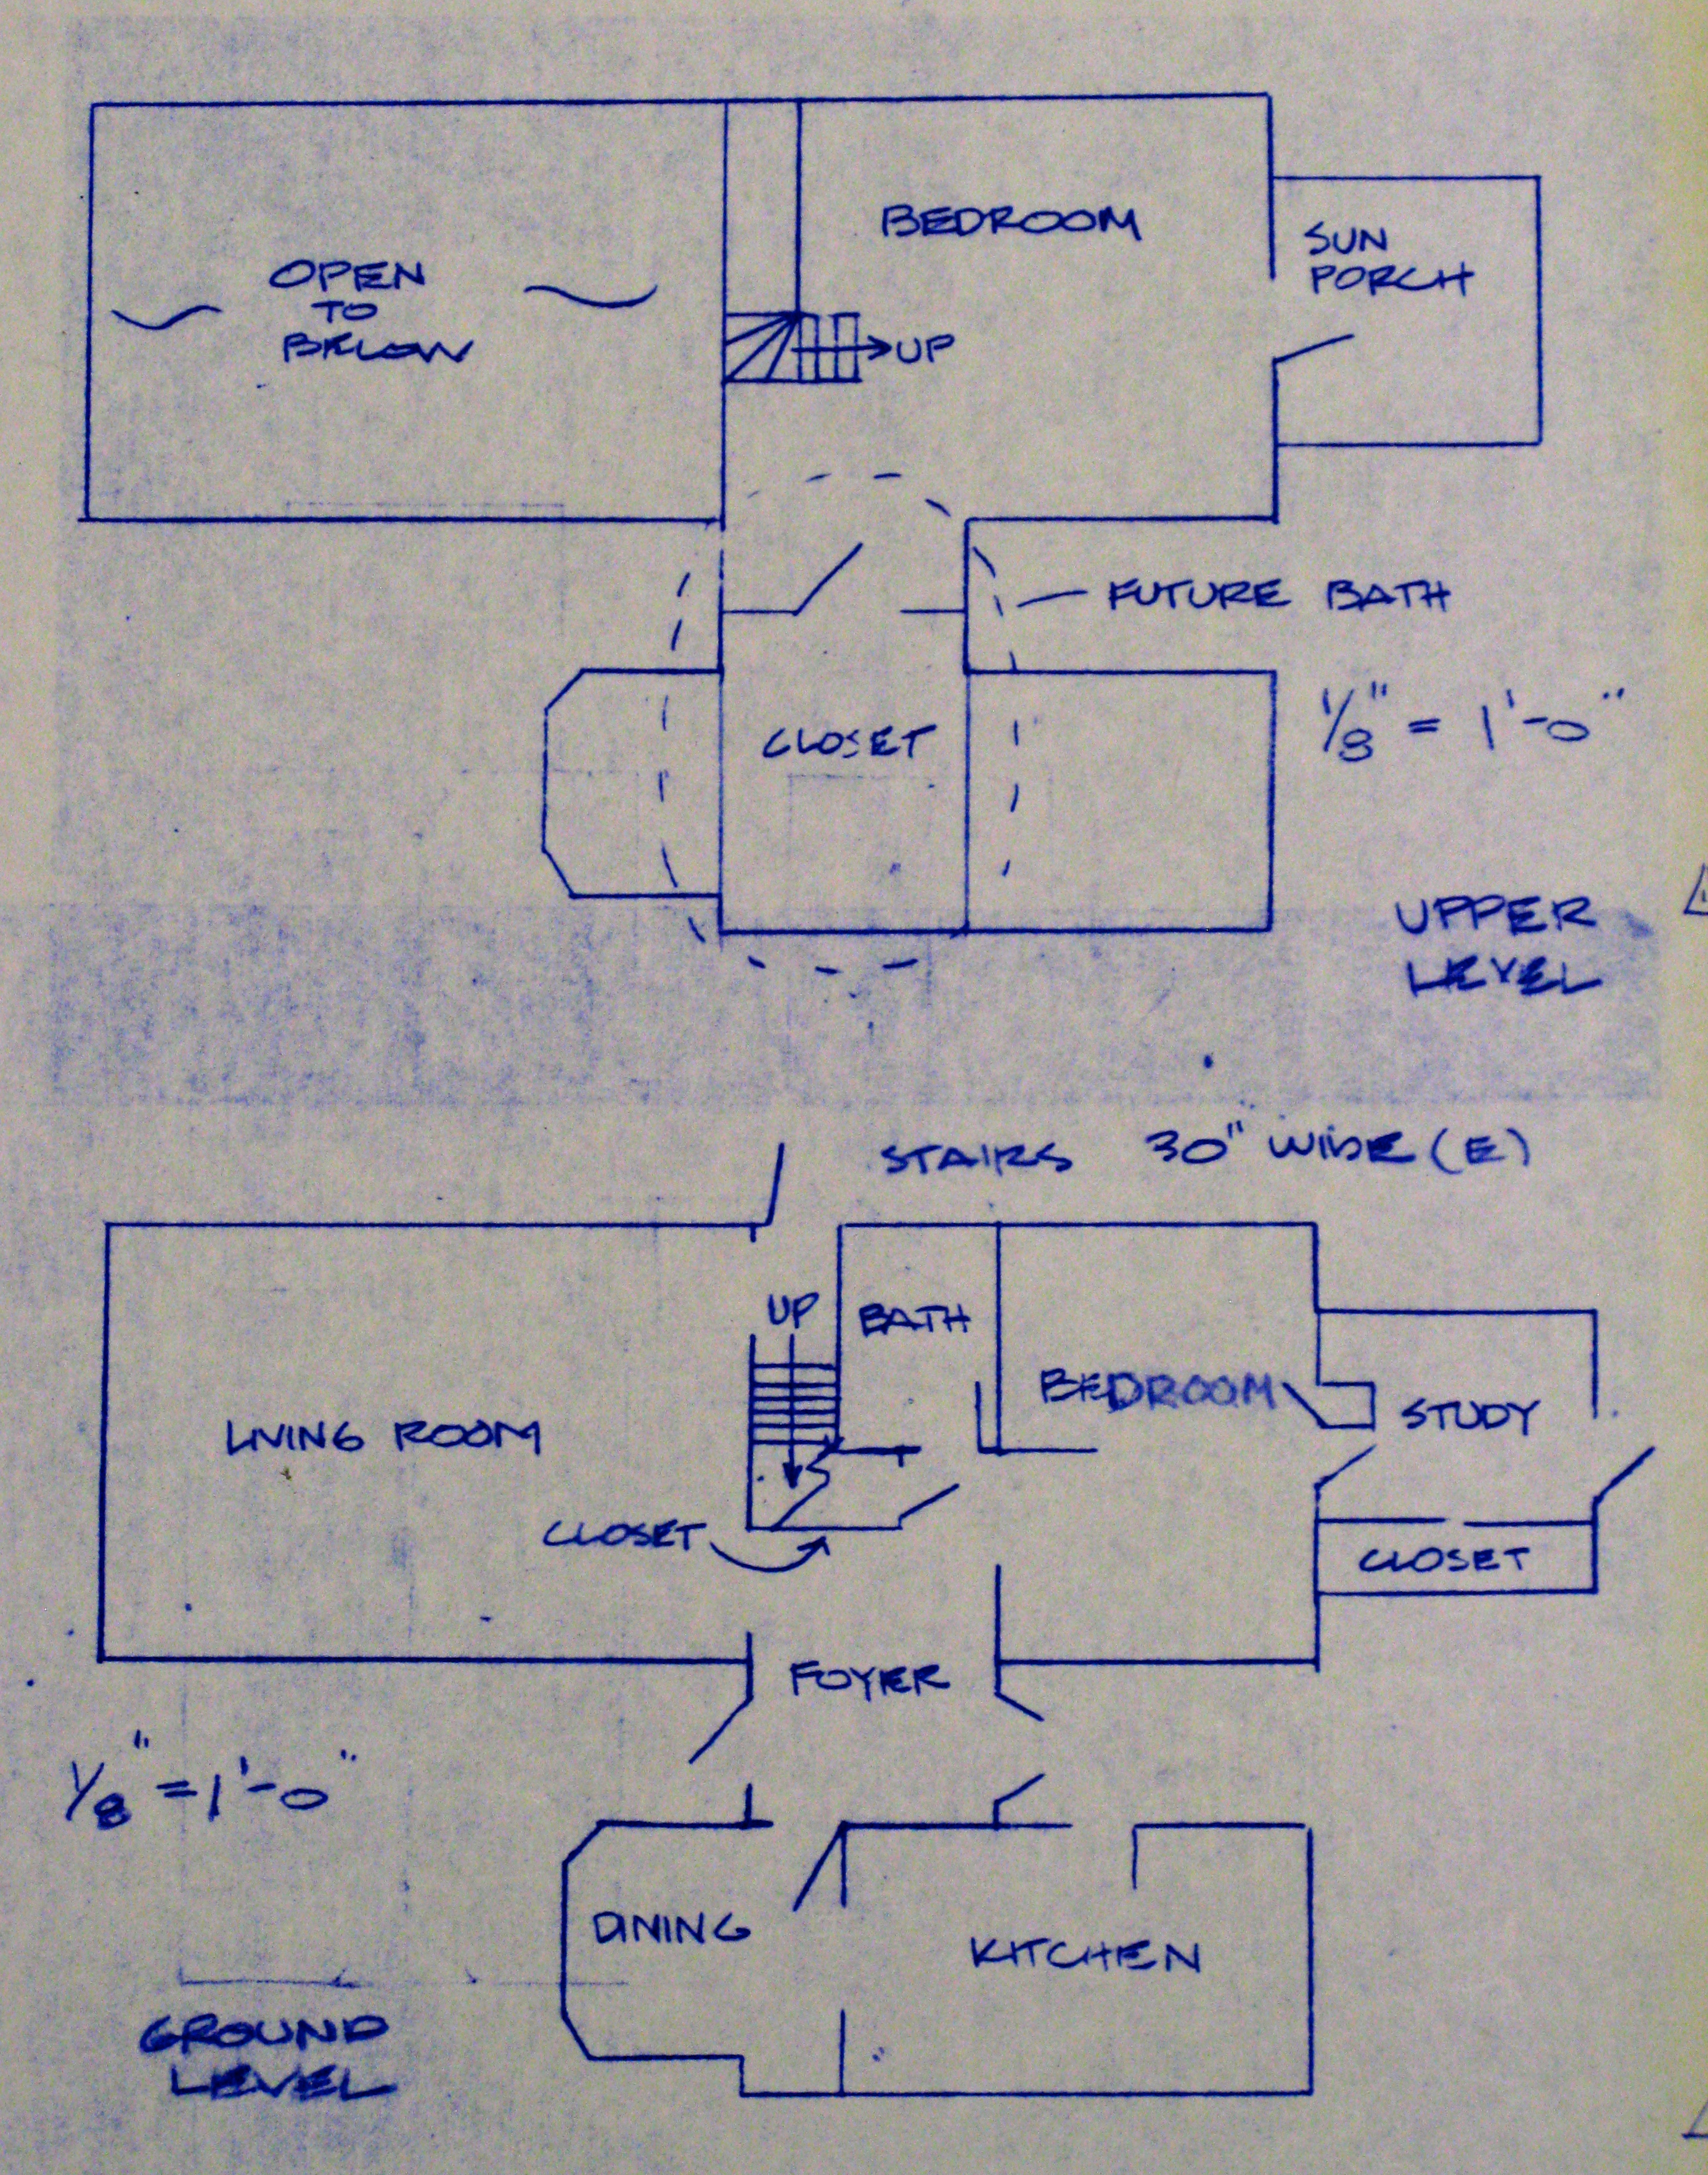 BEDROOM
SUN
PORCH
OPEN
TO
BELOW
UP
FUTURE BATH
1/8" = 1'-0"
CLOSET
UPPER
LEVEL
STAIRS 30" WIDE (E)
UP
BATH
BEDROOM
STUDY
LIVING ROOM
CLOSET
CLOSET
FOYER
1/8" = 1'-0"
DINING
KITCHEN
GROUND
LEVEL